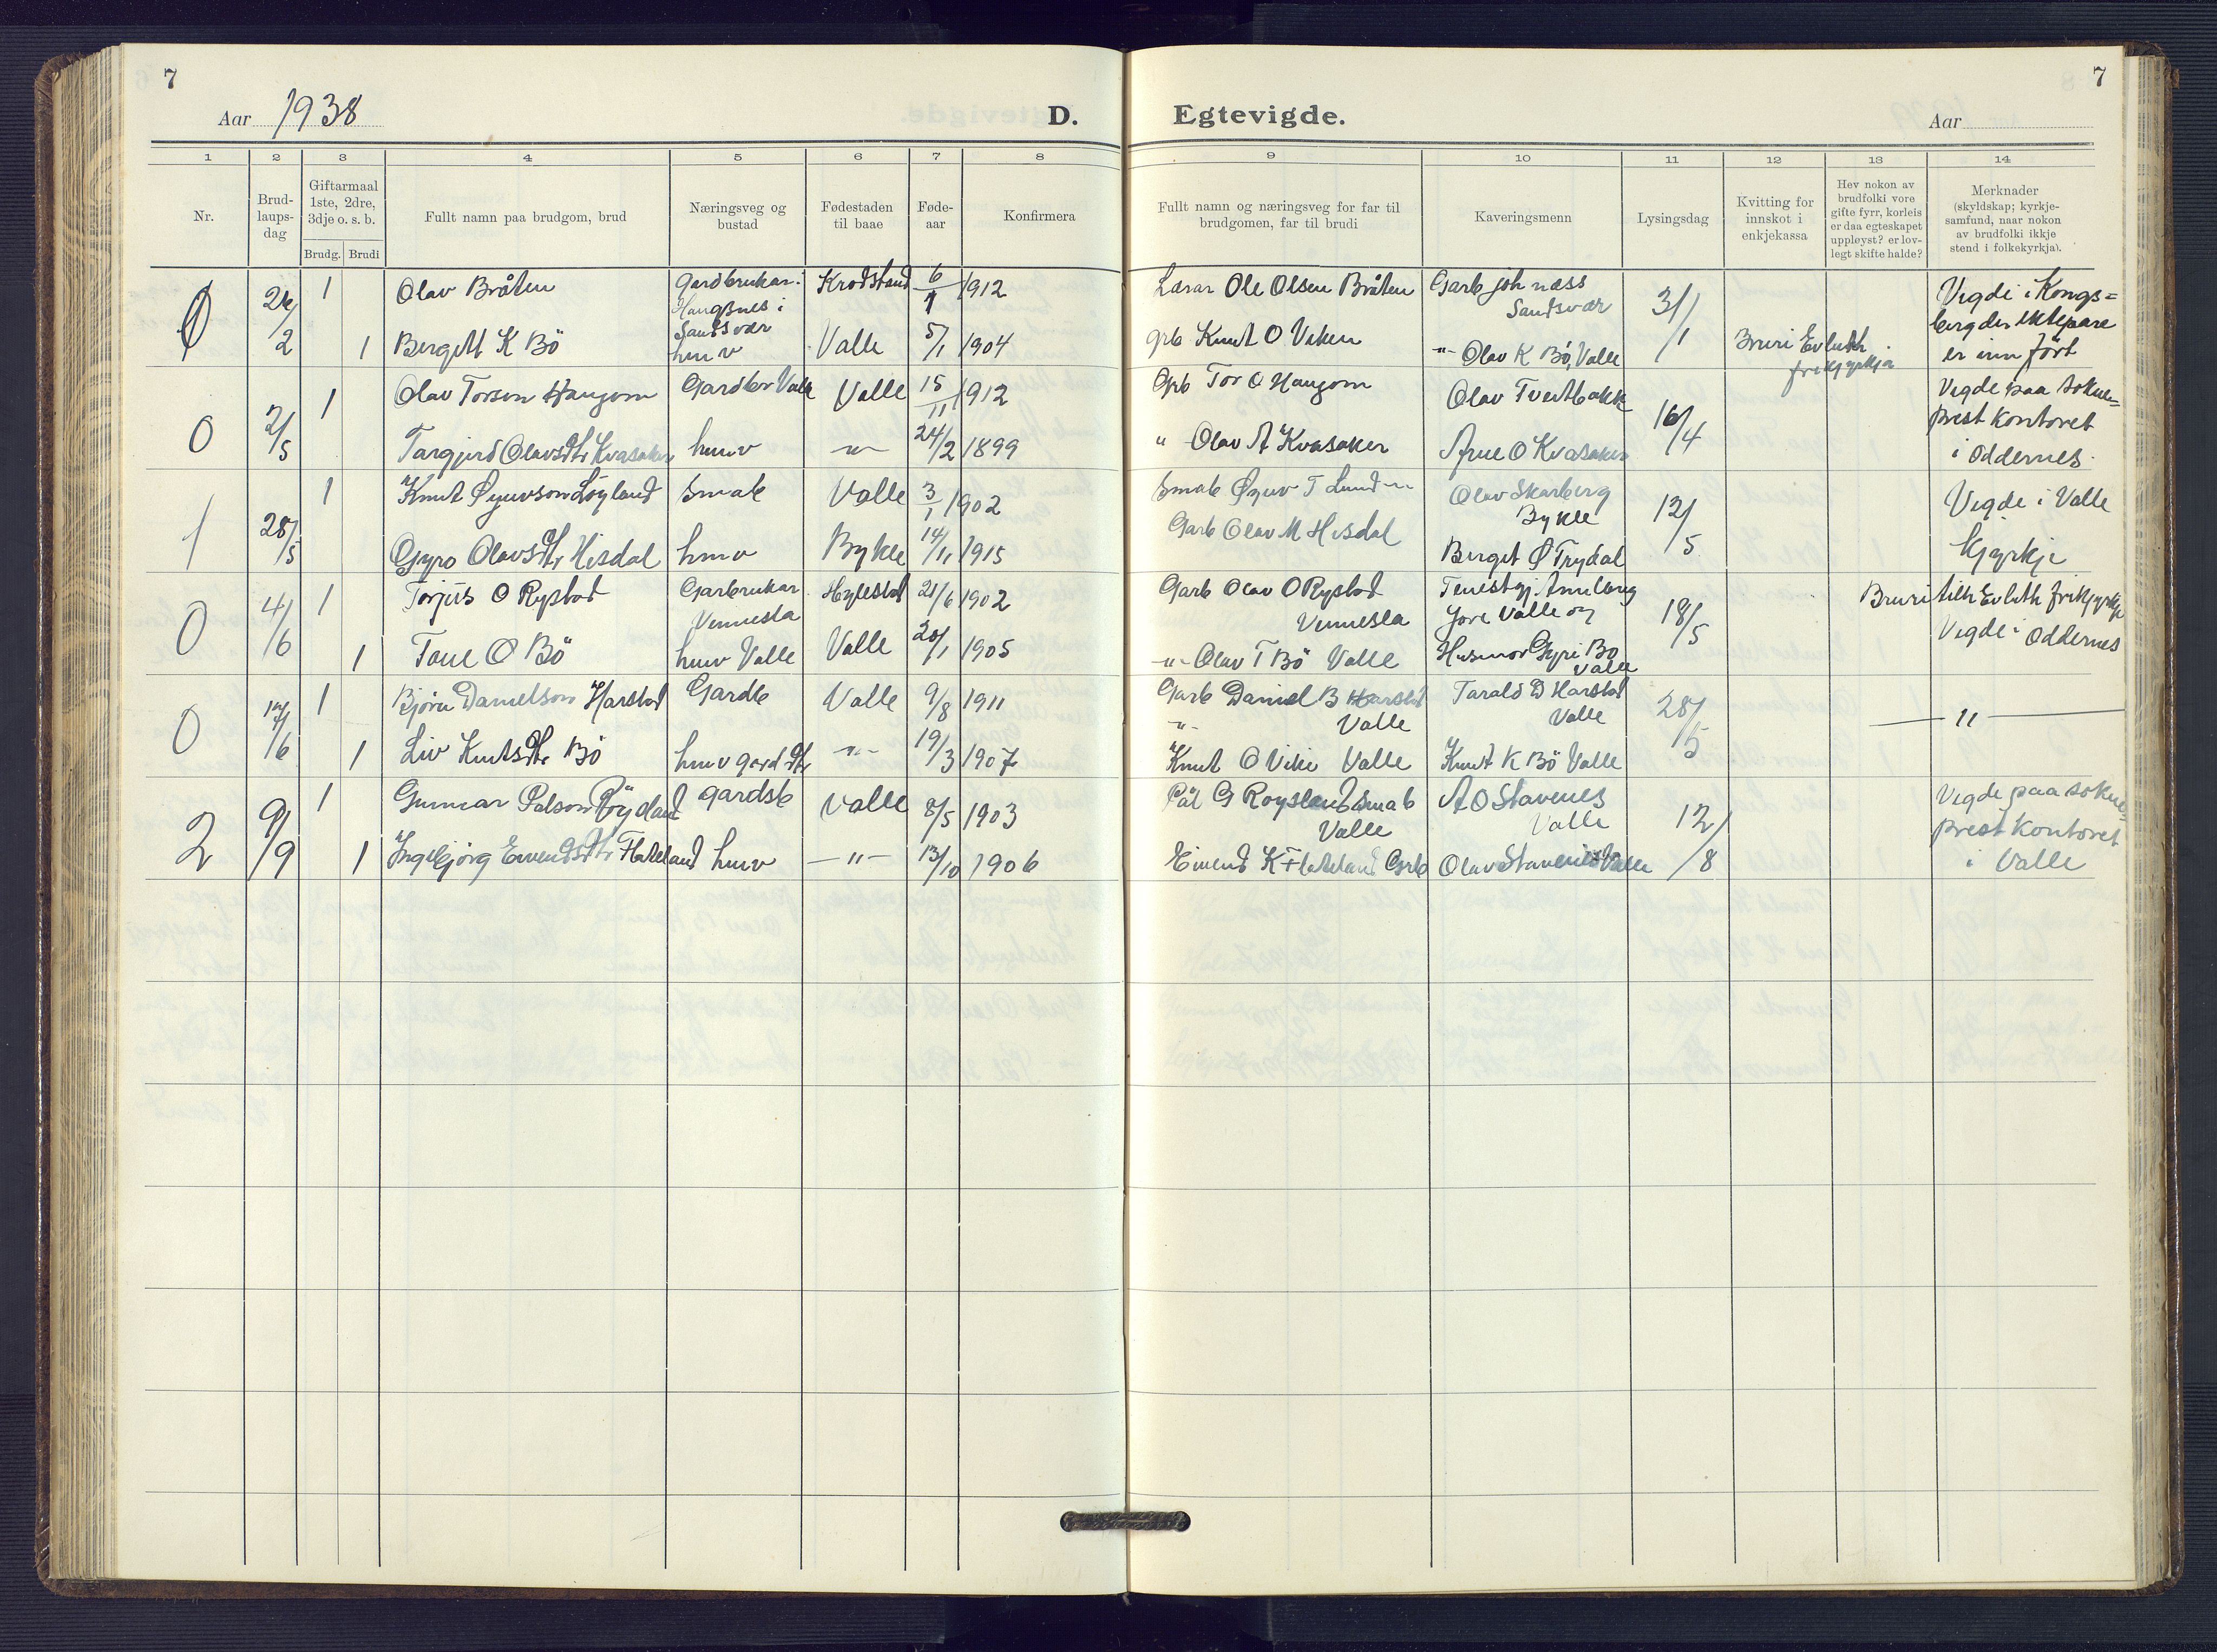 7
Aar 1938
D.
Egtevigde.
7
Aar
1
2
3
4
5
6
7
8
9
10
11
12
13
14
Nr.
Brud-
laups-
dag
Giftarmaal
1ste, 2dre,
3dje o. s. b.
Brudg. Brudi
Fullt namn paa brudgom, brud
Næringsveg og
bustad
Fødestaden
til baae
Føde-
aar
Konfirmera
Fullt namn og næringsveg for far til
brudgomen, far til brudi
Kaveringsmenn
Lysingsdag
Kvitting for
innskot i
enkjekassa
Hev nokon av
brudfolki vore
gifte fyrr, korleis
er daa egteskapet
uppløyst? er lov-
legt skifte halde?
Merknader
(skyldskap; kyrkje-
samfund, naar nokon
av brudfolki ikkje
stend i folkekyrkja).
0 26/2 1 Olav Bråten Gardbrukar Krødsland 6/1 1912 Lærar Ole Olsen Bråten Garb Joh næss Sandsvær 3/1 Vigde i Kongs=
Sandsvær
1 Bergitt K Bö hmv Valle 5/1 1904 grb Knut O Viken -"- Olav K Bö, Valle Bruri Ev luth frikyrkja
berg der ektepare
er inn fört
0 2/5 1 Olav Torson Haugom Gardbr Valle Valle 15/11 1912 Grb Tor O Haugom Olav Tveitbakk 16/4 Vigde paa Sokne=
Targjerd Olavsdtr Kvasaker hmv -"- 24/2 1899 " Olav A Kvasaker Arne O Kvasaker prest kontoret
i Oddernes
1 28/5 1 Knut Øyuvson Löyland Smab Valle 3/1 1902 Smab Øyuv T Lund Olav Skarberg Bykle 12/5 Vigde i Valle
Gyro Olavsdtr Hisdal hmv Bykle 14/11 1915 Garb Olav M Hisdal Berget Ø Trydal Kjyrkje
0 4/6 1 Torjus O Rystad Garbrukar Vennesla Hylestad 21/6 1902 Garb Olav O Rystad Vennesla Tenestgj Annlaug Jore Valle og 18/5 Bruri tilh Ev luth frikjyrkje
1 Tone O Bö hmv Valle Valle 20/1 1905 -"- Olav T Bö Valle Husmor Gyri Bö Valle Vigde i Oddernes
0 1 Björn Danielson Harstad Gardb Valle 9/8 1911 Garb Daniel B Harstad Valle Tarald D Harstad Valle 28/5 — " —
1 Liv Knutsdtr Bö hmv gard dtr -"- 19/3 1907 Knut O Viki Valle Knut K Bö Valle
2 9/9 1 Gunnar Palson Röysland gardsb Valle 8/5 1903 Pål G Roysland Smab Valle A O Stavenes Valle 12/8 Vigde paa sokne
1 Ingebjörg Eivendsdtr Flateland hmv — " — 13/10 1906 Eivend K Flateland Grb Olav Stavenes Valle prest Kontoret
i Valle